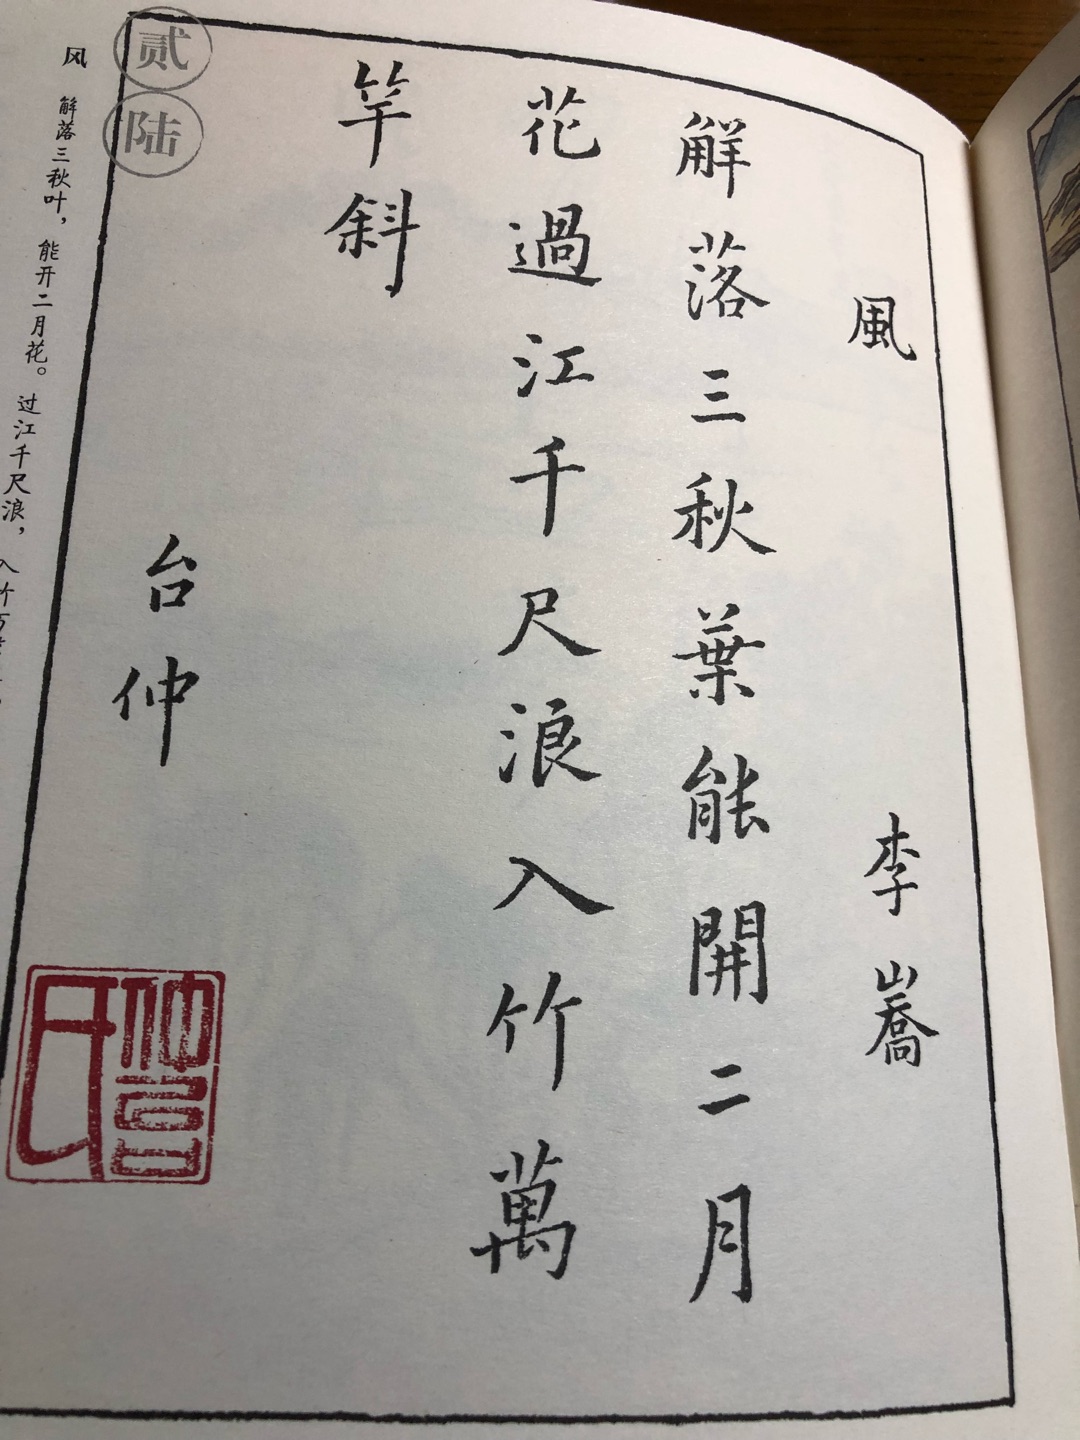 風 李嶠
解落三秋葉能開二月
花過江千尺浪入竹萬
竿斜
台仲
貳陆
风 解落三秋叶，能开二月花。过江千尺浪，入竹万